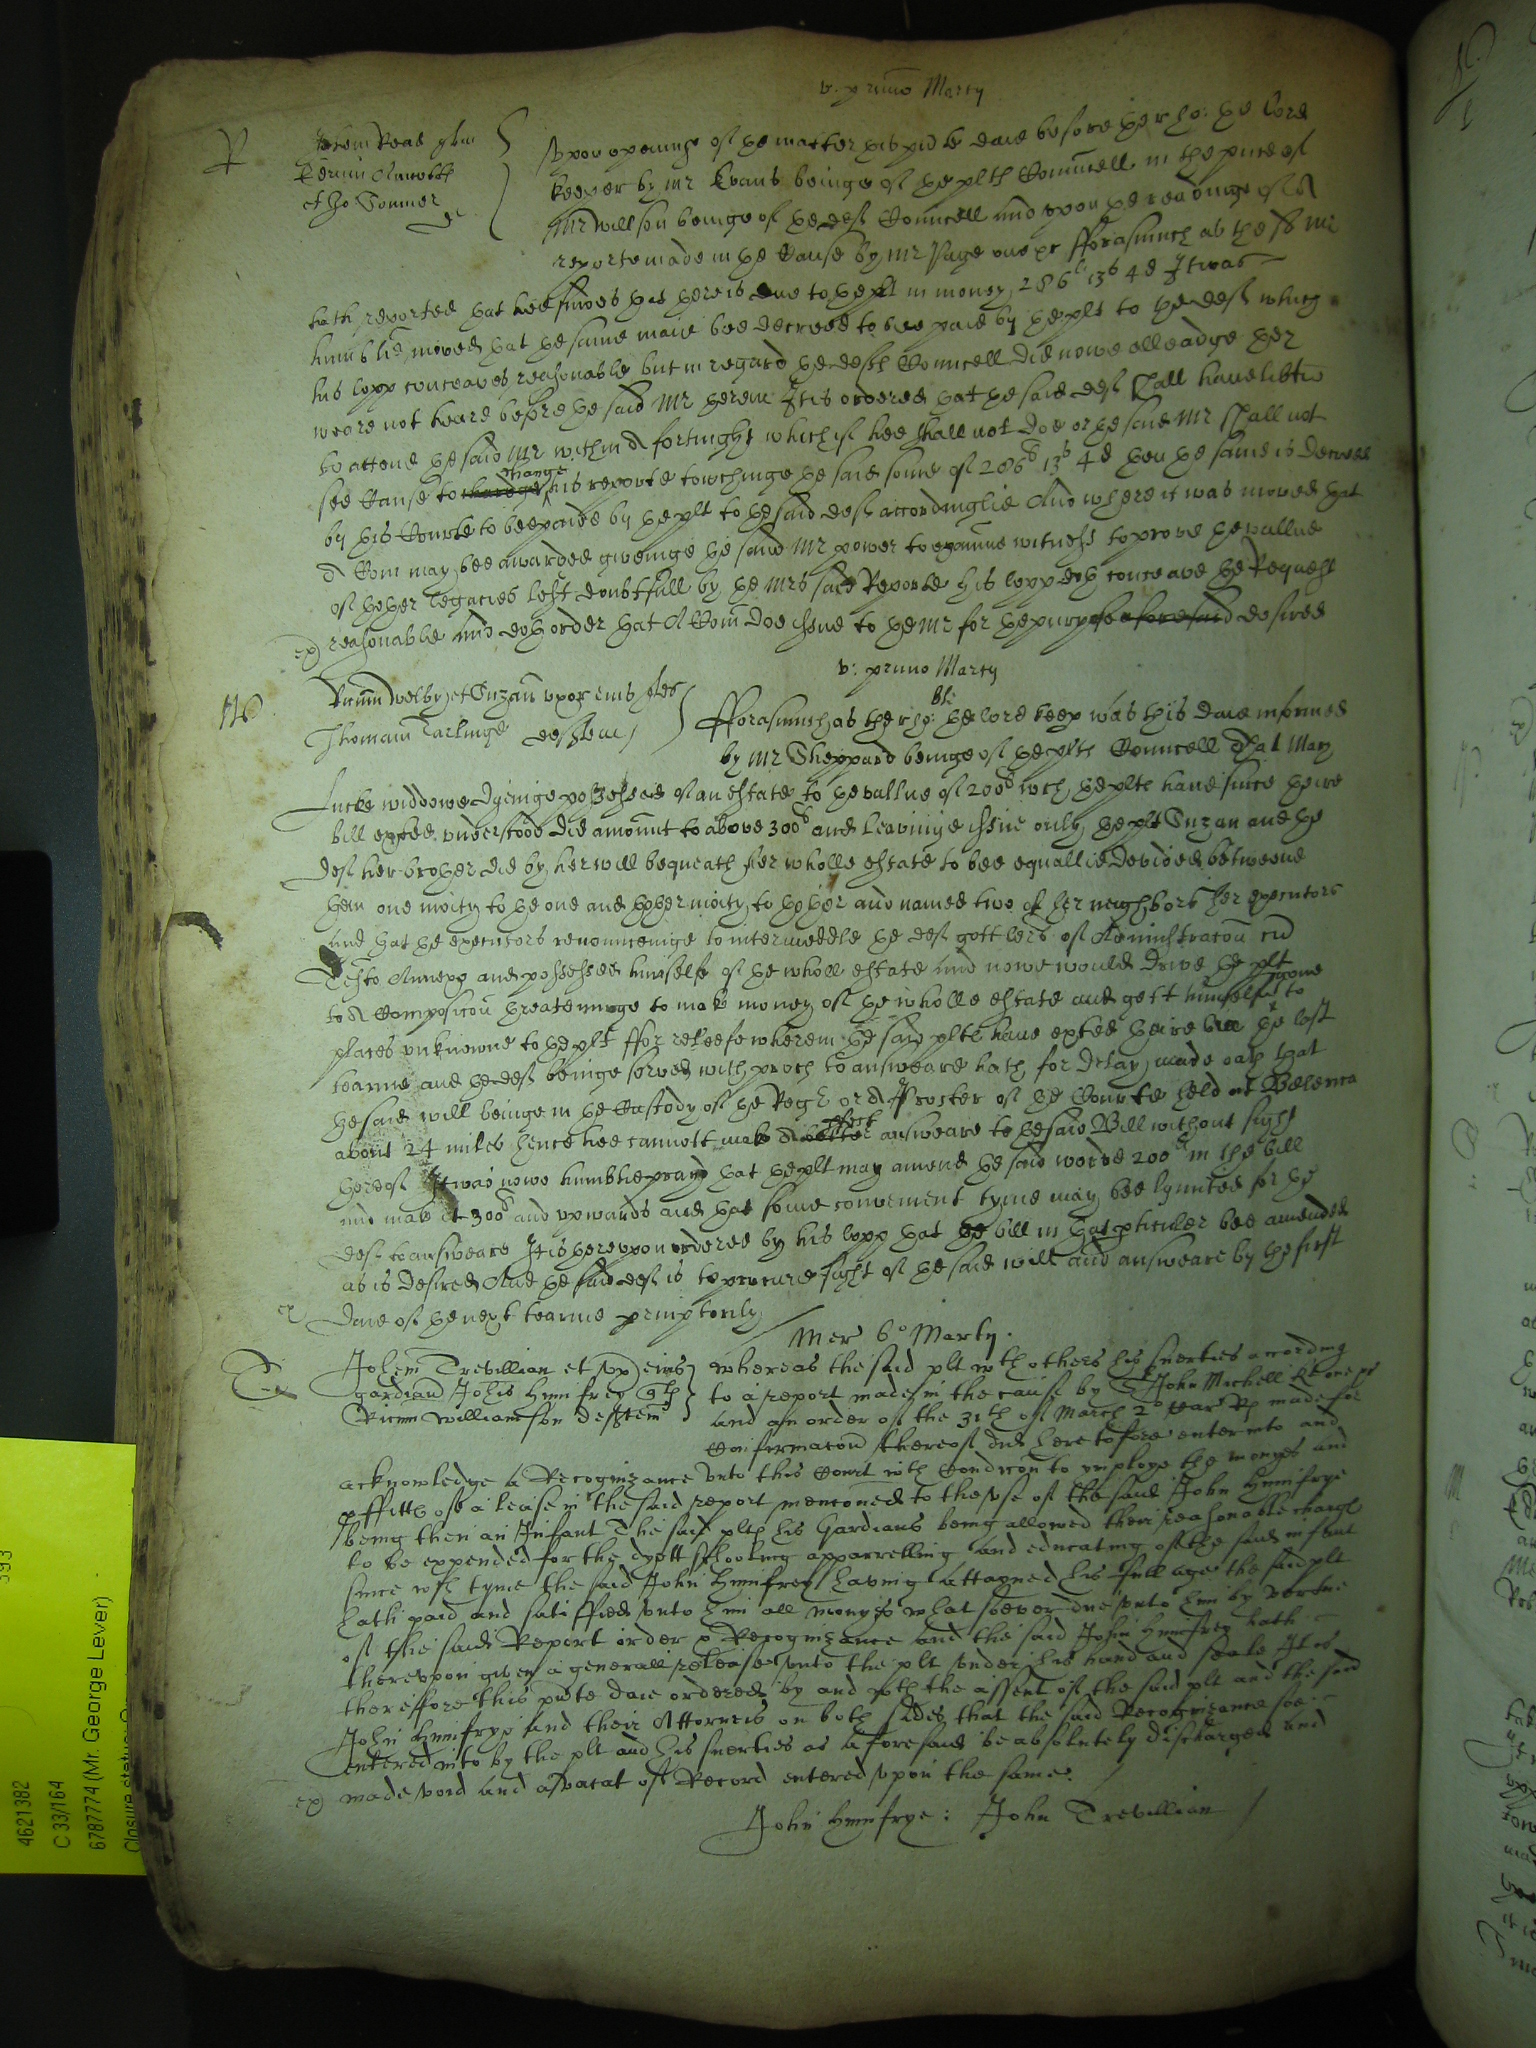 v. primo Marty
R
Johem Reade plm
Uppon openinge of the matter this pnte daie before the right ho: the lord
keeper by Mr Evans beinge of the plts Councell in the pnce of
Tho Conner
Mr Willson beinge of the defts Councell and upon the readinge of A
reporte made in the Cause by Mr Page one &c fforasmuch as the sd Mr
hath reported that hee findes that there is due to the plt in money 286li 13s 4d It was
humblie moved that the same maie bee decreed to bee paid by the plt to the deft which
his lopp conceaves reasonable but in regard the defts Councell did nowe alleadge they
weare not heard before the said Mr therein It is ordered that the said deft shall have libtie
to attend the said Mr within A fortnight which if hee shall not doe or the said Mr shall not
see Cause to chardge change his reporte towchinge the said some of 286li 13s 4d then the same is decreed
by this Courte to bee paied by the plt to the said deft accordinglie And where it was moved that
A Com may bee awarded giveinge the said Mr power to examine witness to prove the vallue
of other legacies left doubtfull by the Mrs said Reporte his lopp doth conceave the Request
ex reasonable And doth order that A Com doe issue to the Mr for the purpose aforesaid desired
v. primo Marty
W
Ricum Welby et Suzan uxor eius ples
Thomam Carlinge deftem
fforasmuch as the right ho: the lord keep was this daie informed
by Mr Sheppard beinge of the plts Councell That Mary
Lucke widdowe dyeinge possessed of an estate to the vallue of 200li wch the plts have since their
bill exted understood did amount to above 300li and leavinge issue only the plt Suzan and the
deft her brother did by her will bequeath her wholle estate to bee equallie devided betweene
them one moity to the one and thother moity to thother and named two of her neighbors her executors
And that the executors renounceinge to intermeddle the deft gott lers of Administracon cu
Testo Annexo and possessed himselfe of the wholl estate And nowe would drive the plt
to A Composicon threateninge to make money of the wholle estate and gett himselfe gone to
places unknowne to the plt ffor releefe wherein the said plts have exted their bill the last
tearme and the deft beinge served with proces to answeare hath for delay made oath that
the said will beinge in the Custody of the Regr or A Proctor of the Courte held at
about 24 miles hence hee cannott make A better answeare to the said Bill without sight
thereof It was nowe humblie prayd that the plt may amend the said worde 200li in the bill
and make it 300li and upwards and that some convenient tyme may bee lymited for the
deft to answeare It is thereupon ordered by his lopp that the bill in that pticuler bee amended
as is desired And the said deft is to procure sight of the said will and answeare by the first
ex daie of the next tearme pemptorily
Mer 6o Marty.
T
Johem Trevillian et ux eius
gardian Johis Humfrey plts
Ricum Williamson deftem
Whereas the said plt with others his suerties according
to a report made in the cause by Sr John Michell kt one &c
and an order of the 31th of March 2o Car Rs made for
Confirmacon thereof did heretofore enter into and
acknowledge a Recognizance unto this Court with Condicon to imploye the monyes and
pffitts of a lease in the said report mencioned to the use of the said John Humfrye
being then an Infant The said plts his Gardians being allowed their reasonable charge
to be expended for the dyett schooling apparrelling and educating of the said infant
since wch tyme the said John Humfrey having attayned his full age the said plt
hath paid and satisffied unto him all monyes whatsoever due unto him by vertue
of the said Report order & Recognizance And the said John Humfrey hath
thereupon given a generall release unto the plt under his hand and seale It is
thereffore this pnte daie ordered by and with the assent of the said plt and the said
John Humfrye and their Attorneis on both sides that the said Recognizance soe
entered into by the plt and his suerties as aforesaid be absolutely discharged and
ex made void and a vacat of Record entered upon the same.
John Humfrye: John Trevillian
393
4621382
C 33/164
6787774 (Mr. George Lever)